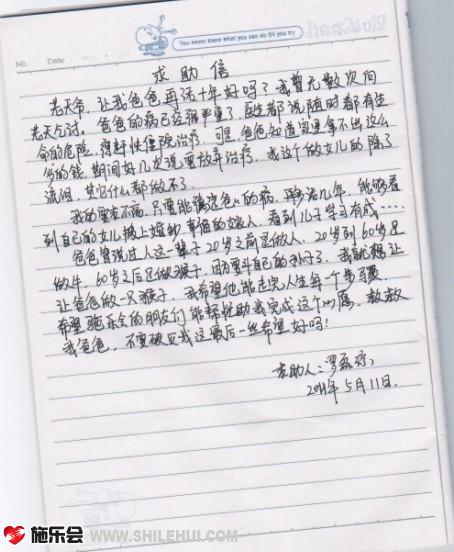 You never know what you can do till you try
NO.
Date
求助信
老天爷，让我爸爸再活十年好吗？我曾无数次问
老天爷。爸爸的病已经很严重了，医生都说随时都有生
命的危险，得料性住院治疗，可是，爸爸知道家里拿不出这么
多的钱，期间好几次说要放弃治疗，我这个做女儿的除了
流泪，其它什么都做不了。
我的要求不高，只要能让爸爸的病，再多活几年，能够看
到自己的女儿披上婚纱，幸福的嫁人，看到儿子学习有成……
爸爸曾说过人这一辈子20岁之前是做人，20岁到60岁是
做牛，60岁之后是做猴子，因为要斗自己的孙子了。我就想让
让爸爸做一只猴子，我希望他能走完人生每一个步骤，
希望施乐会的朋友们能帮忙助我完成这个心愿，救救
我爸爸，不要破灭我这最后一丝希望好吗！
求助人：罗
2011年5月11日.
施乐会 WWW.SHILEHUI.COM